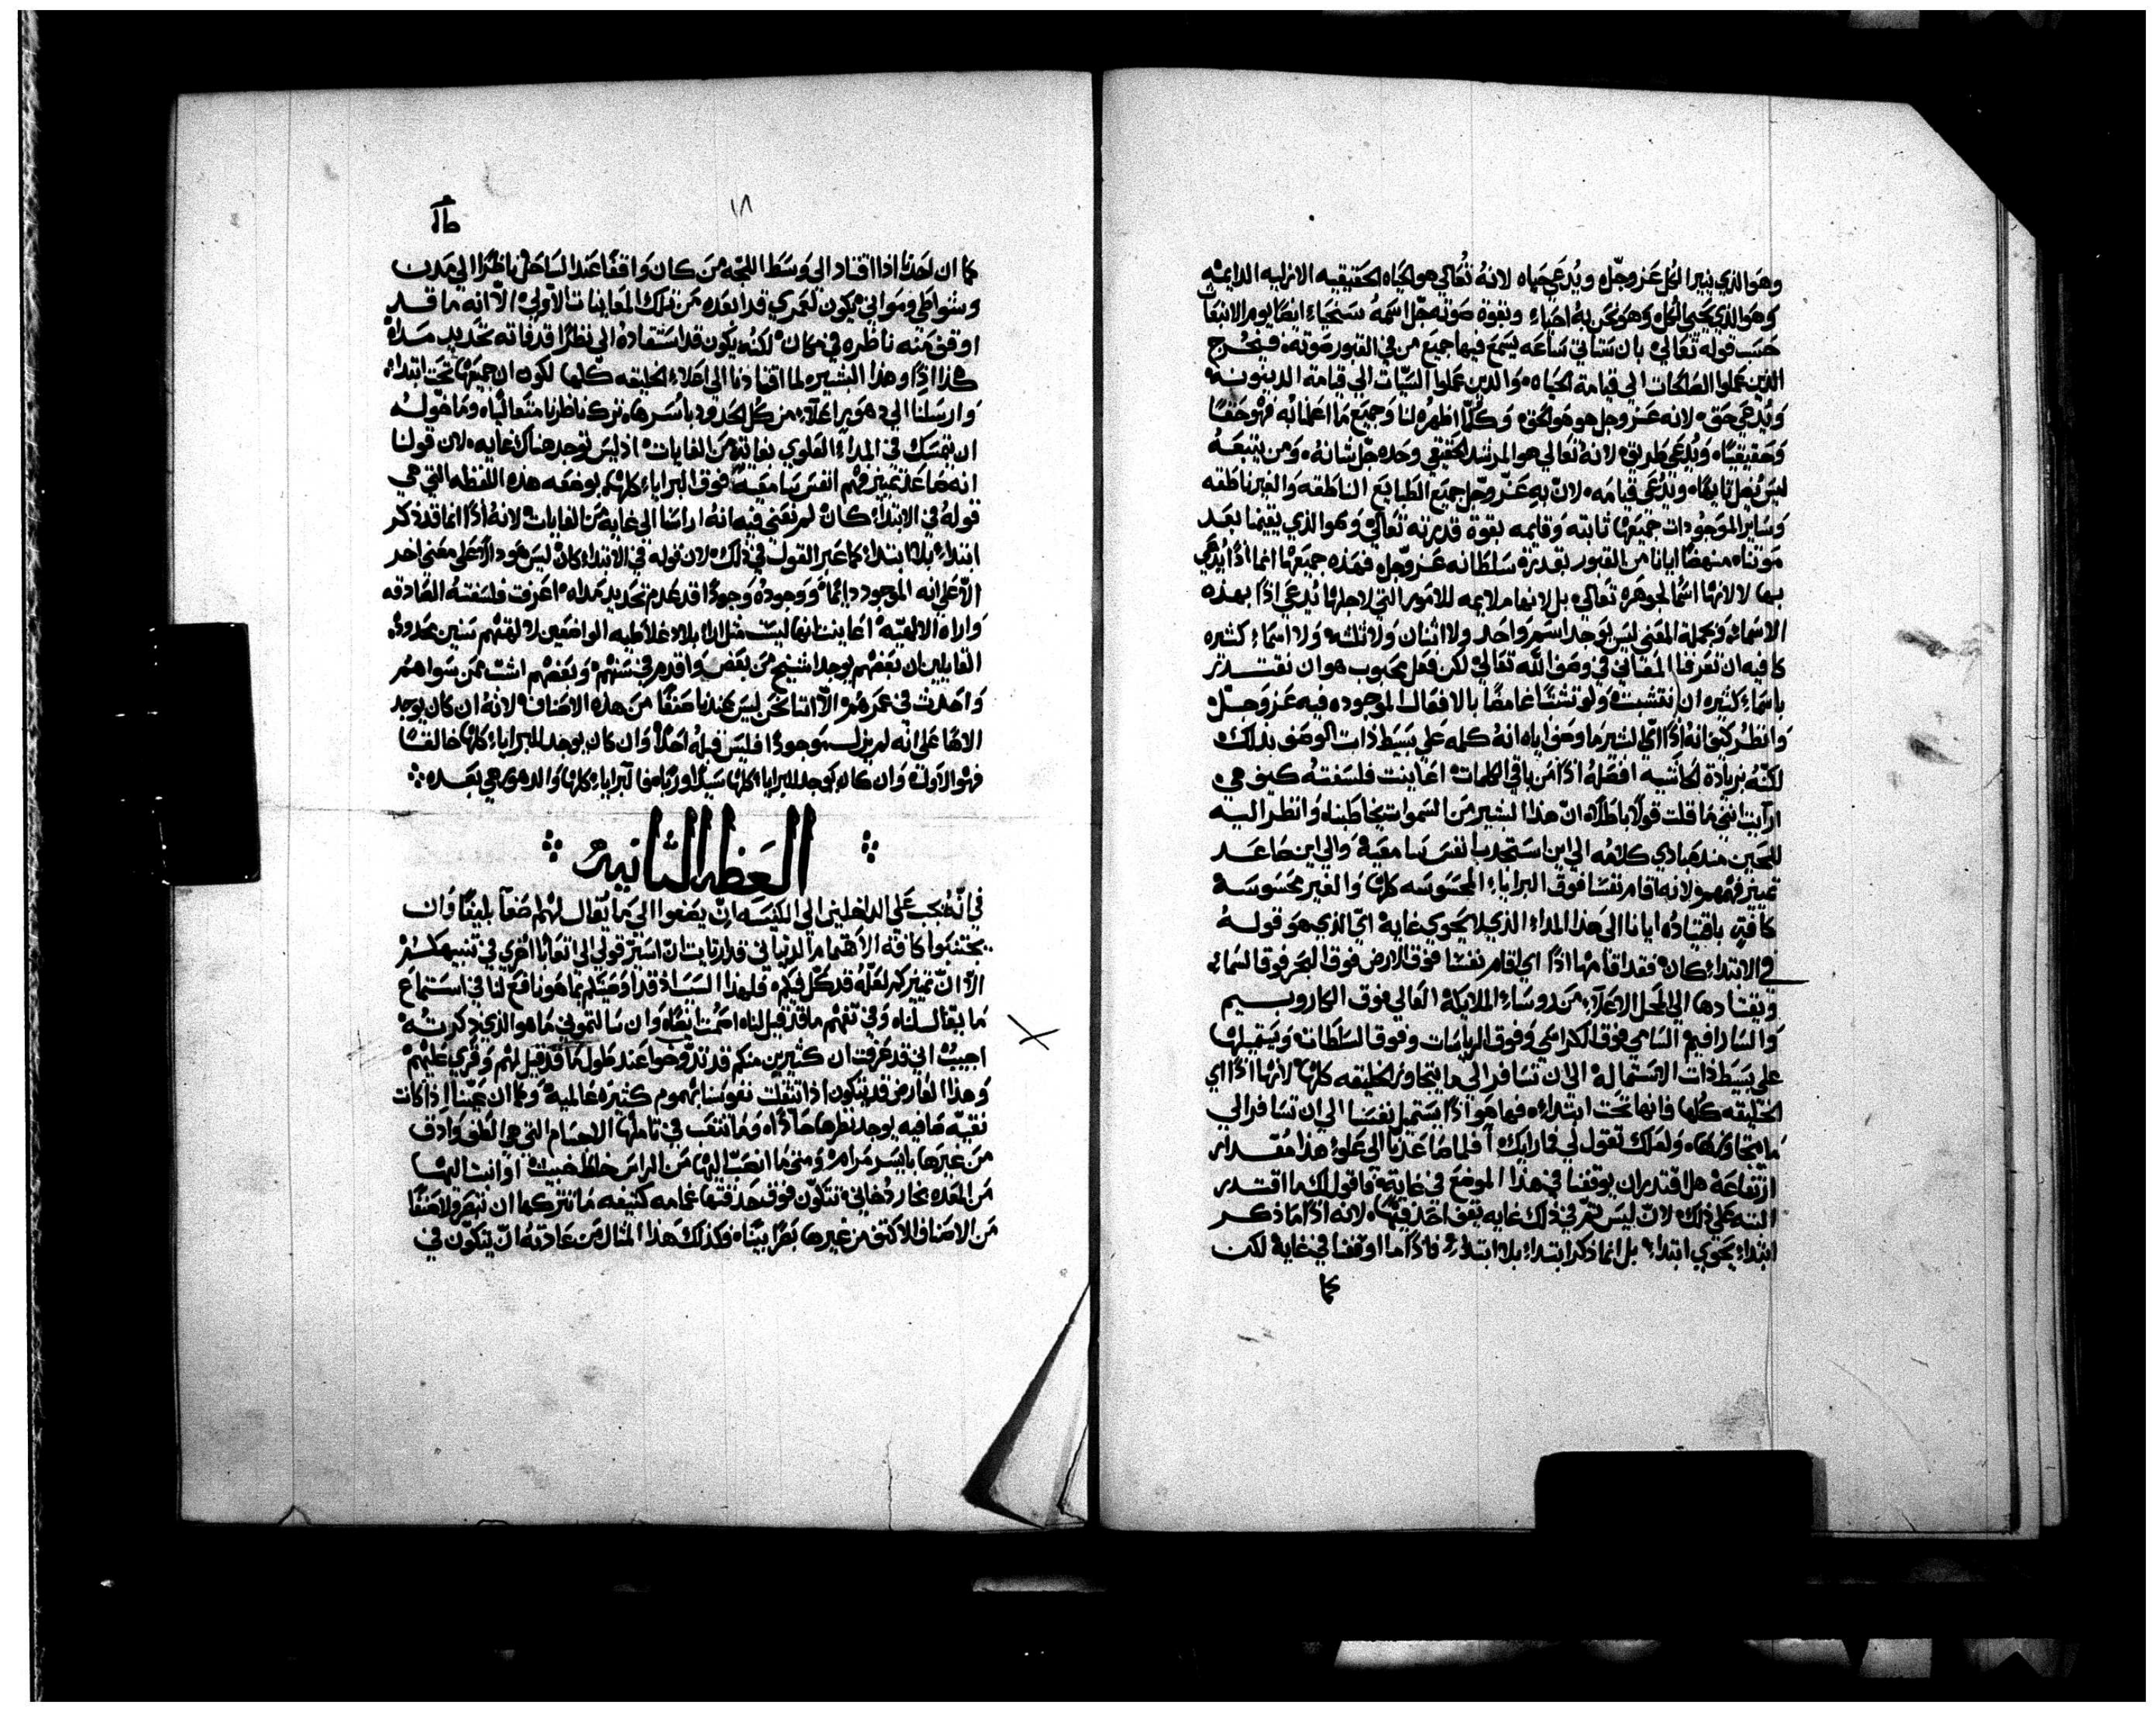 وهو الذي ينير الكل عز وجل، ويُدعى حياه لانهُ تُعالي هو الحياه الحقيقيه الازليه الدايمه
وهو الذي يحيي الكل وهو نحن به احياء وبقوة صوته جل اسمهُ سنحياء ايضًا يوم الانبعاث
حسب قوله تعالي بان ستاتي ساعه يسمع فيها جميع من في القبور صوته، فيخرج
الذين عملوا الصالحات الى قيامة الحياه، والذين عملوا السيّات الي قيامة الدينونه
ويُدعي حق، لانه عز وجل هو هو الحق، وكلّما اظهره لنا وجميع ما اعلنا به فهو حقًا
وحقيقيًا، ويُدعي طريق، لانهُ تعالي هو المرشد الحقيقي وحده جل شانه، ومن يتبعهُ
ليس يُضل تايهًا، ويُدعي قيامه، لانّ به عز وجل جميع الطبايع الناطقه والغير ناطقه
وساير الموجودات جميعها ثابته وقايمه بقوة قدرته تعالي، وهو الذي يقيمنا بعد
موتنا، منهضًا ايانا من القبور بقدرة سلطانه عز وجل، فهذه جميعها انما اذًا يُدعي
بها لا لانها اسمًا لجوهره تعالي، بل لانها ملايمه للامور التي لاجلها يُدعي اذًا بهذه
الاسماء، وبجملة المعني ليس يوجد اسم واحد ولا اثنان ولا ثلثه ولا اسماء كثيره
كافيه ان تعرفنا المعاني في وصف الله تعالي، لكن فعل محبوب هو ان نقتدر
باسماء كثيره ان نتشبث ولو تشبثًا غامضًا بالافعال الموجوده فيه عز وجل
وانظر كيف انهُ اذًا ايّ لشير ما وصف اياه انهُ كلمه علي بسيط ذات الوصف بذلك
لكنّهُ بزيادة الحاشيه افصلهُ اذًا من باقي الكلمات، اعاينت فلسفتهُ كيف هي
ارايت انني ما قلت قولًا باطلًا، انّ هذا البشير من السموات يخاطبنا، وانظر اليه
للحين منذ مبادي كلامه الي اين استجذب نفس سامعيه، والي اين صاعد
تمييز فهمهم، لانه اقام نفسًا فوق البرايا المحسوسه كلها والغير محسوسه
كافةٍ، باقتياده ايانا الى هذا المداء الذي لا يحوي غايه، ايّ الذي هو قولهُ
في الابتداء كان، فقد اقامها اذًا اي اقام نفسًا فوق الارض فوق البحر فوق السماء
ويقتادها الي المحل الاعلاء من روساء الملايكة العالي فوق الكاروبيم
والسارافيم السامي فوق الكراسي وفوق الرياسات وفوق السلطات، ويستميلها
علي بسيط ذات الاستماله الي ان تسافر الي ما يتجاوز الخليقه كلها، لانها اذًا اي
الخليقه كلها فانها تحت ابتداء، فها هو اذًا يستميل نفسنا الي ان تسافر الي
ما يتجاوزها، ولعلك تقول لي فما رايك، أفلما صاعدنا الي علو هذا مقدار
ارتفاعهُ هل اقتدر ان يوقفنا في هذا الموضع في غايةٍ، فاقول لك ما اقتدر
البته علي ذلك، لانّ ليس ثم في ذلك غايه يقف احد فيها، لانه اذًا ما ذكر
ابتداء يحوي ابتداء، بل انما ذكر ابتداء بلا ابتداء، فاذًا ما اوقفنا في غايةٍ لكن
كما
١٨
كما ان احدًا اذا اقتاد الي وسط اللجّه من كان واقفًا عند الساحل ناظرًا الي مدن
وشواطي ومواني يكون لعمري قد ابعده من تلك المعاينات الاولي، الّا انه ما قد
اوقف منه ناظره في مكان، لكنهُ يكون قد استقاده الي نظرًا قد فاته تحديد مداه
هكذا اذًا وهذا البشير لما اقتادنا الي اعلاء الخليقه كلها لكون ان جميعها تحت ابتداء
وارسلنا الي دهور اعلاء من كل الحدود باسرها، ترك ناظرنا متعاليًا، وما خوّلهُ
ان يتمسك في المداء العلوي بغايةٍ من الغايات، اذ ليس توجد هناك غايه، لان قولنا
انه صاعد تمييز فهم انفس سامعيه فوق البرايا كلهم بوضعه هذه اللفظه التي هي
قولهُ في الابتداء كان، لم نعني فيه انهُ ارسا الي غاية من الغايات، لانهُ اذًا انما قد ذكر
ابتداء بلا ابتداء كما عبر القول في ذلك، لان قوله في الابتداء كان ليس هو دالًا علي معني اخر
الّا علي انه الموجود دايمًا، ووجودهُ وجودًا قد عدم تحديد مداه، اعرفت فلسفتهُ الصادقه
واراه الالهيّه، اعاينت انها ليست مثل اراء بلاد غلاطيه الواضعين لالهتهم سنين محدوده
القايلين ان بعضهم يوجد اشيخ من بعض واقدم في سنهم، وبعضهم اشبّ ممن سواهم
واحدث في عمرهم، الّا اننا نحن ليس عندنا صنفًا من هذه الاصناف، لانهُ ان كان يوجد
الاهًا علي انّه لم يزل موجودًا فليس قبلهُ احدًا، وان كان يوجد للبرايا كلها خالقًا
فهو الاول، وان كان يوجد للبرايا كلها سيدًا وربًا فما البرايا كلها والدهور هي بعده
العظه الثانيه
في انّه يجب علي الداخلين الي الكنيسه ان يصغوا الي ما يُقال لهم صغاً بليغًا وان
يجتنبوا كافة الاهتمام الدنياني، فلارتابت انّ اسير قولي الي اتعابًا اخري في تنبيهكم
الّا انّ تمييزكم لعلّه قد كلّ فيكم، فلهذا السبب اذ قد اوصيتكم بما هو نافع لنا في استماع
ما يقال لنا، وفي تفهم ما قد قيل لنا، اصمت ايضًا، وان سالتموني ما هو الذي ذكرتهُ
اجبتُ اني قد عرفت ان كثيرين منكم قد تدوخوا عند طول ما قد قيل لهم وقري عليهم
وهذا العارض قد يتكون اذا تثقلت نفوسنا بهموم كثيره عالميه، وكما ان عيننا اذا كانت
نقيّه صافيه يوجد نظرها حادًا، وما تتعب في تاملها الاجسام التي هي الطف وادق
من غيرها بايسر مرام، ومتي ما انصبّ اليها من الراس خلط خبيث، او انبت اليها
من المعده بخار دُخاني، تتكوّن فوق حدقتها غمامه كثيفه ما تتركها ان تبصر ولا صنفًا
من الاصناف الاكثف من غيرها بصرًا بينًا، فكذلك هذا المثال من عادته انّ يتكوّن في